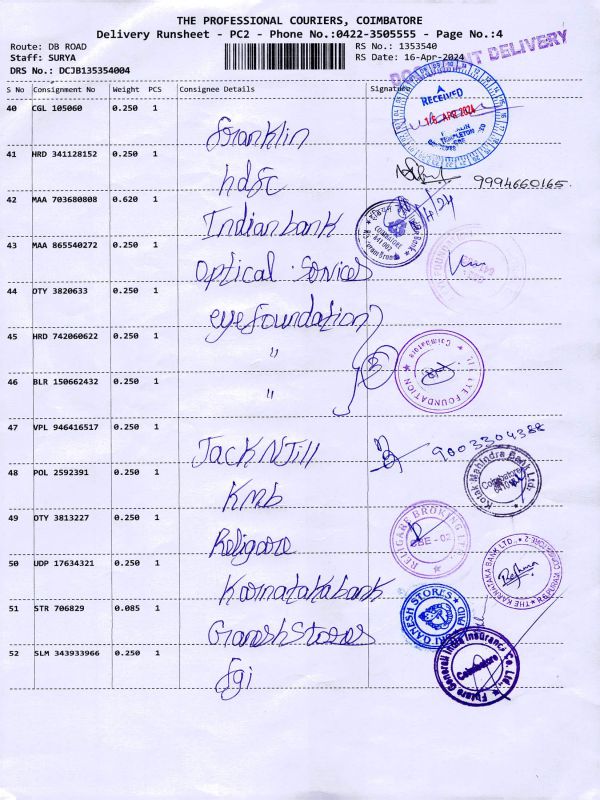 THE PROFESSIONAL COURIERS, COIMBATORE
Delivery Runsheet - PC2 - Phone No.:0422-3505555 - Page No.:4
Route: DB ROAD
Staff: SURYA
DRS No.: DCJB135354004
RS No.: 1353540
RS Date: 16-Apr-2024
DELIVERY
S No Consignment No Weight PCS Consignee Details Signature
40 CGL 105060 0.250 1 Franklin
RECEIVED
16 APR 2024
41 HRD 341128152 0.250 1 hdfc 9994660165
42 MAA 703680808 0.620 1 Indian bank
43 MAA 865540272 0.250 1 Optical Services
44 OTY 3820633 0.250 1 eyefoundation
45 HRD 742060622 0.250 1 "
46 BLR 150662432 0.250 1 "
3
EYE FOUNDATION
Coimbatore
47 VPL 946416517 0.250 1 Jack N Jill 9003304388
48 POL 2592391 0.250 1 Kmb
Kotak Mahindra Bank Ltd.
Coimbatore
49 OTY 3813227 0.250 1 Religare
RELIGARE BROKING LTD.
CBE - 02
50 UDP 17634321 0.250 1 Karnataka bank
THE KARNATAKA BANK LTD.
51 STR 706829 0.085 1 Ganesh Stores
GANESH STORES
52 SLM 343933966 0.250 1 fgi
Future Generali India Insurance Co. Ltd.
Coimbatore